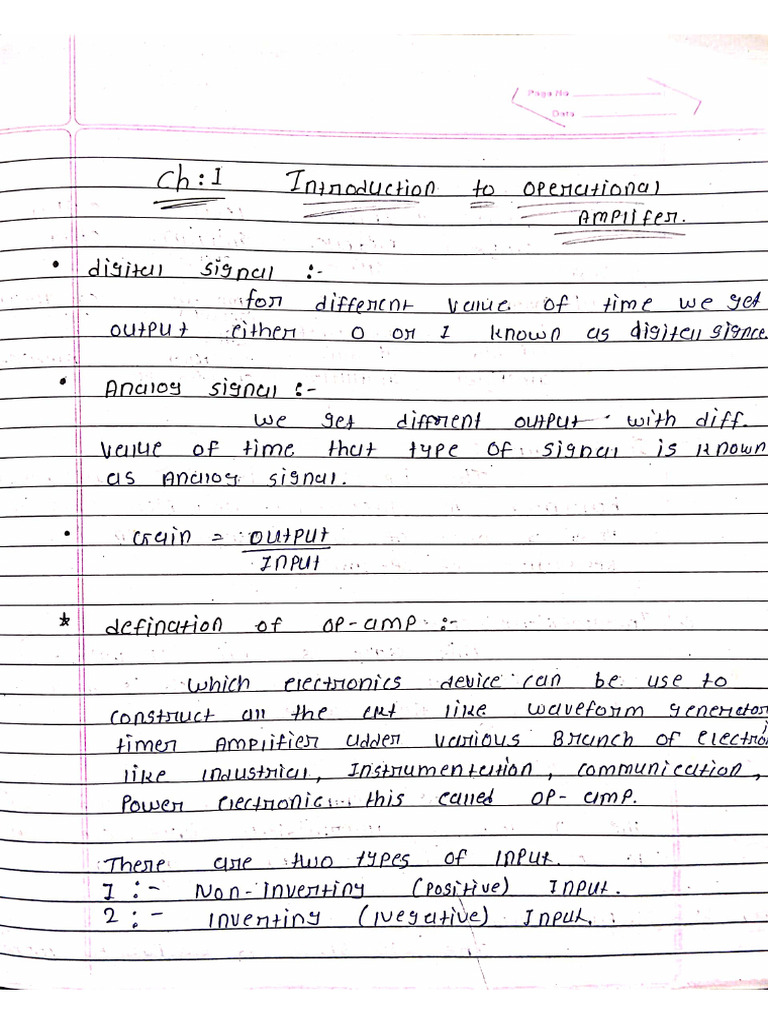 Page No
Date
Ch:1 Introduction to operational
Amplifer.
• digital signal :-
for different value of time we get
output either 0 or 1 known as digital signal
• Analog signal :-
we get diffrent output with diff.
value of time that type of signal is known
as Analog signal.
• Gain = output
Input
* defination of op-amp :-
which electronics device can be use to
construct all the ckt like waveform generator
timer Amplifier adder various Branch of electroni
like industrial, Instrumentation, communication,
Power electronic this called op-amp.
There are two types of input.
1 :- Non-inverting (positive) Input.
2 :- Inverting (Negative) Input.